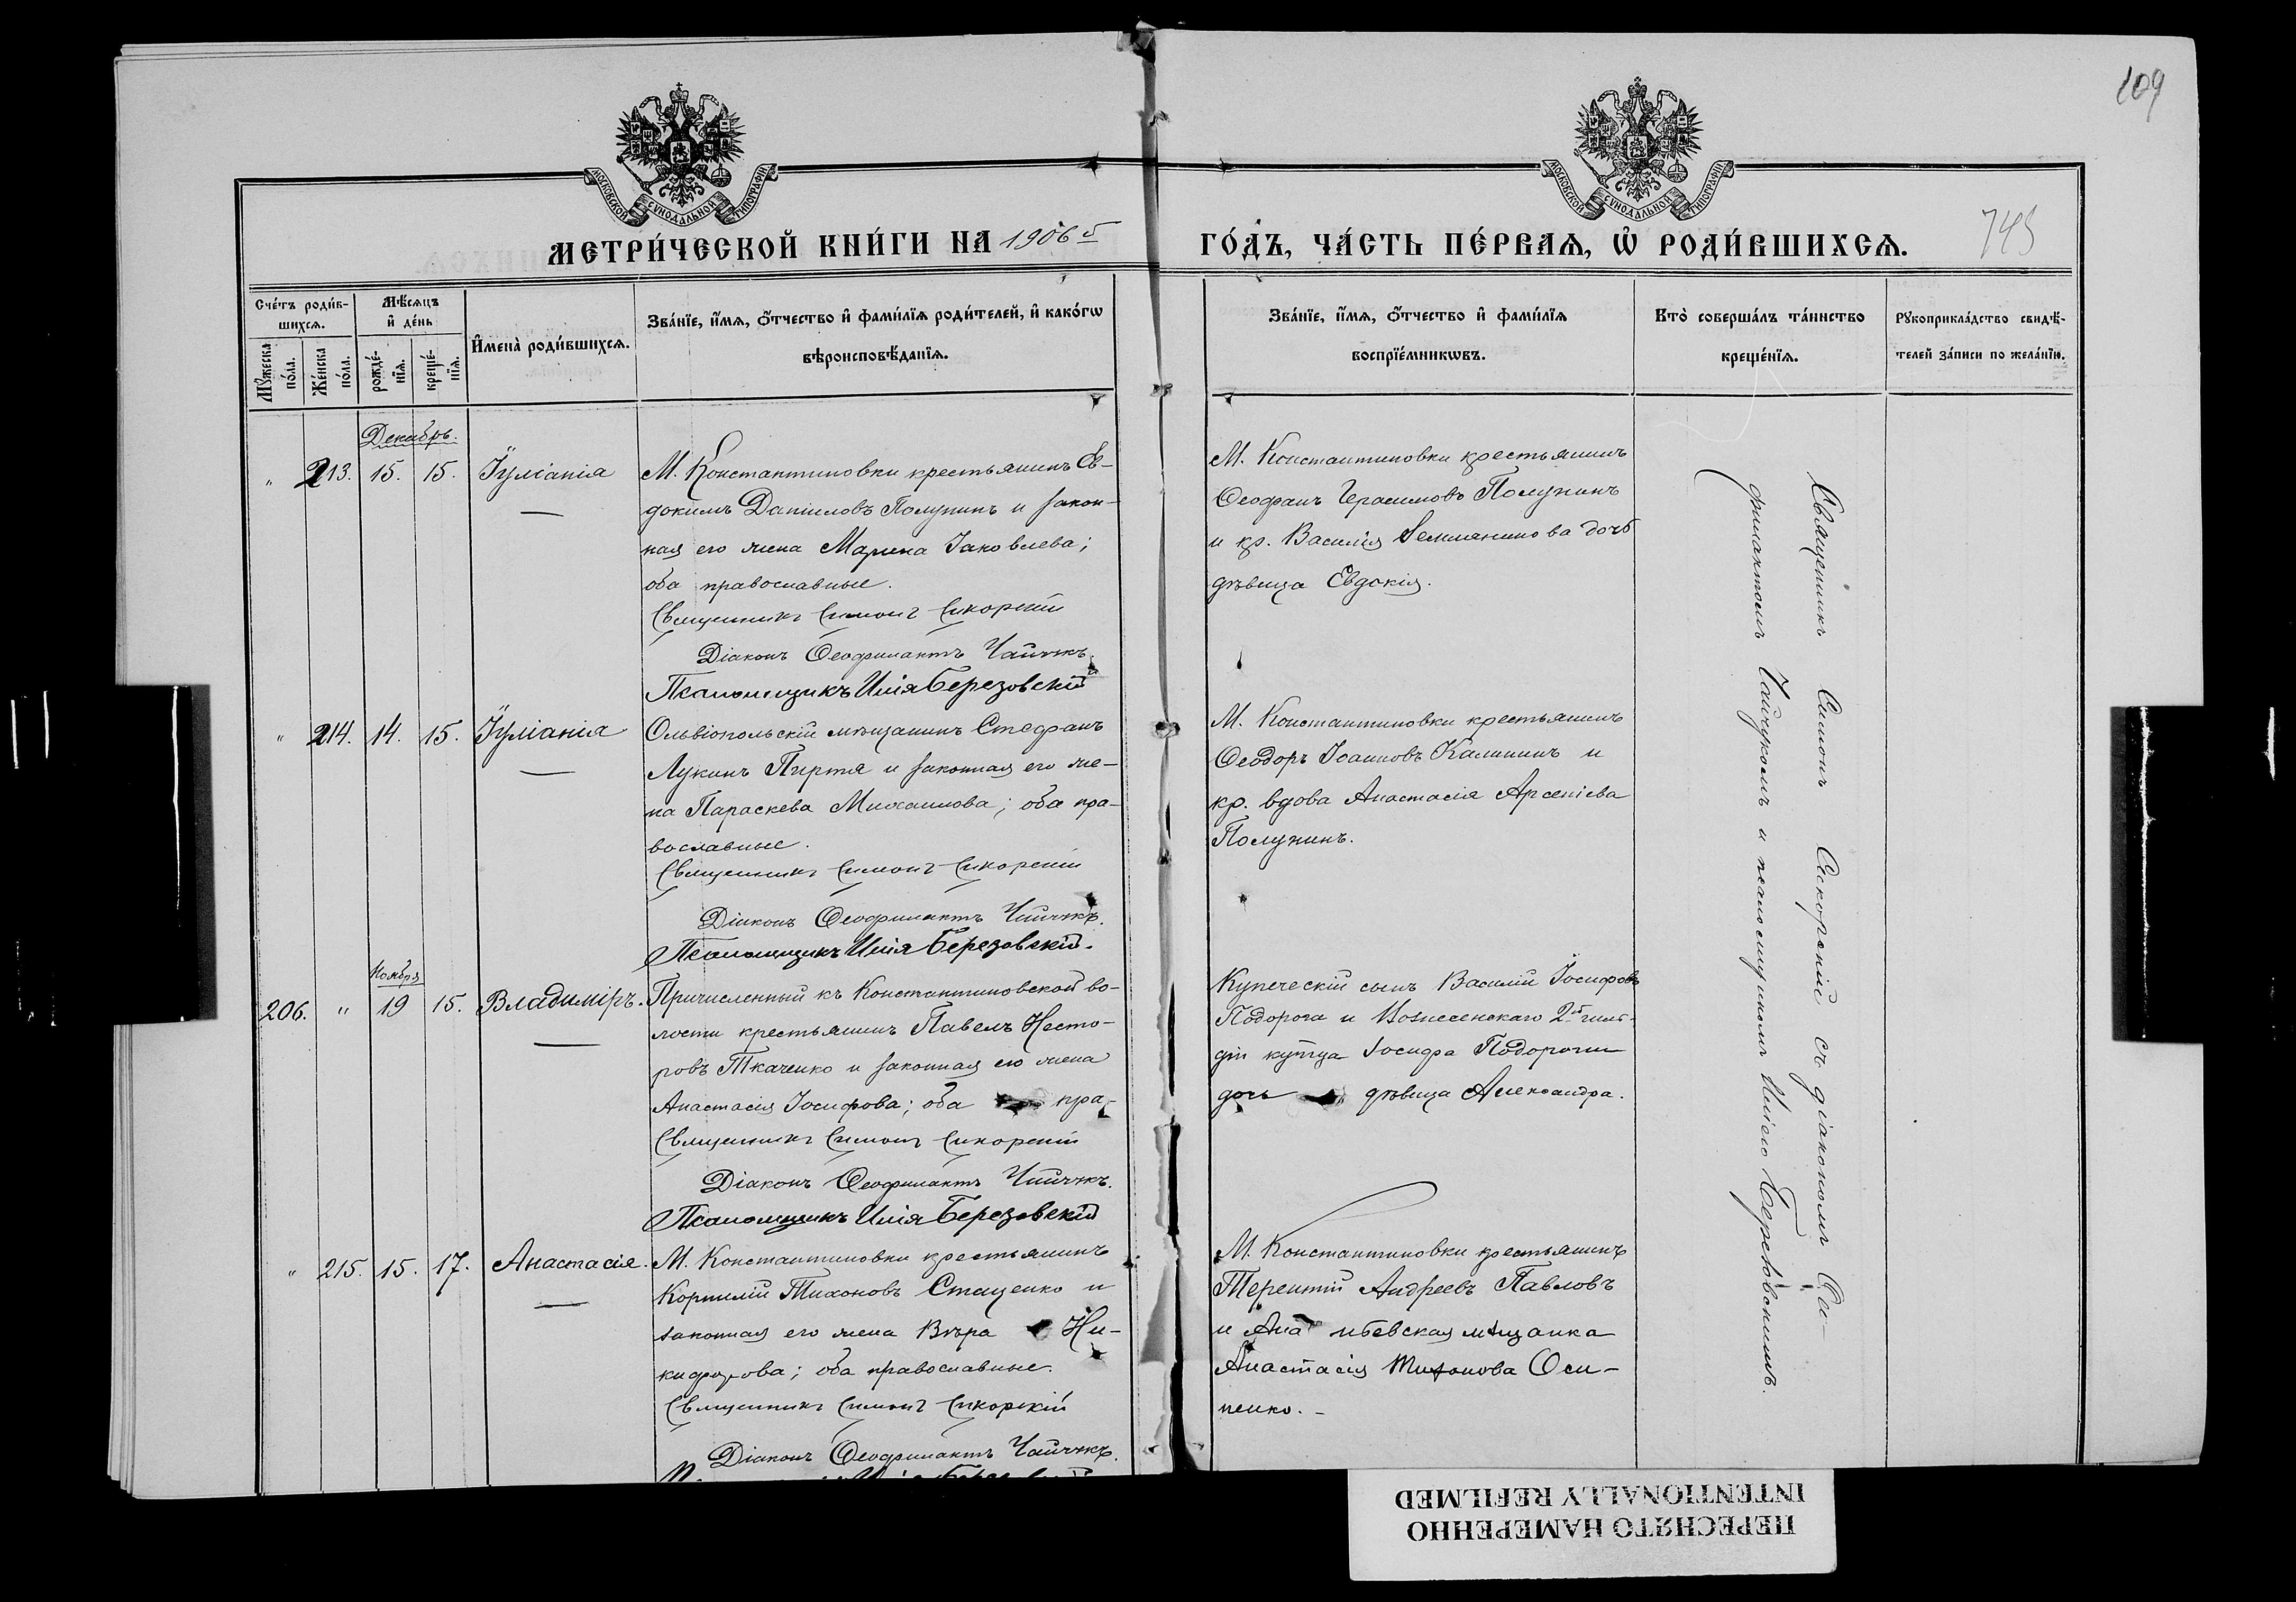 109
МОСКОВСКОЙ СѴНОДАЛЬНОЙ ТИПОГРАФІИ
МОСКОВСКОЙ СѴНОДАЛЬНОЙ ТИПОГРАФІИ
МЕТРИ́ЧЕСКОЙ КНИ́ГИ НА 1906й
ГО́ДЪ, ЧА́СТЬ ПЕ́РВАѦ, Ѡ҆ РОДИ́ВШИХСѦ.
745
Сче́тъ роди́в-
шихсѧ.
Мѣ́сѧцъ
и҆ де́нь
Мꙋ́жеска по́ла.
Же́нска по́ла.
рожде́-нїѧ.
креще́-нїѧ.
И҆мена̀ роди́вшихсѧ.
Зва́нїе, и҆́мѧ, ѻ҆́тчество и҆ фами́лїѧ роди́телей, и҆ како́гѡ
вѣроисповѣ́данїѧ.
Зва́нїе, и҆́мѧ, ѻ҆́тчество и҆ фами́лїѧ
воспрїе́мникѡвъ.
Кто̀ соверша́лъ та́инство
креще́нїѧ.
Рꙋкоприкла́дство свидѣ́-
телей за́писи по жела́нїю.
Декабрь.
" 213. 15. 15. Іуліанія
М. Константиновки крестьянинъ Ев-
докимъ Даніиловъ Полунинъ и закон-
ная его жена Марина Іаковлева;
оба православные.
Священникъ Симонъ Сикорскій
Діаконъ Ѳеофилактъ Чайчукъ.
Псаломщикъ Илія Березовскій
М. Константиновки крестьянинъ
Ѳеофанъ Герасимовъ Полунинъ
и кр. Василія Земляннинова дочь
дѣвица Евдокія.
" 214. 14. 15. Іуліанія
Ольвіопольскій мѣщанинъ Стефанъ
Лукинъ Пиртя и законная его же-
на Параскева Михаилова; оба пра-
вославные.
Священникъ Симонъ Сикорскій
Діаконъ Ѳеофилактъ Чайчукъ.
Псаломщикъ Илія Березовскій.
М. Константиновки крестьянинъ
Ѳеодоръ Іоанновъ Калининъ и
кр. вдова Анастасія Арсеніева
Полунинъ.
Ноября
206. " 19 15. Владиміръ.
Причисленный къ Константиновской во-
лости крестьянинъ Павелъ Несто-
ровъ Ткаченко и законная его жена
Анастасія Іосифова; оба пра-
Священникъ Симонъ Сикорскій
Діаконъ Ѳеофилактъ Чайчукъ.
Псаломщикъ Илія Березовскій
Купеческій сынъ Василій Іосифовъ
Подорога и Вознесенскаго 2й гиль-
діи купца Іосифа Подороги
дочь дѣвица Александра.
" 215. 15. 17. Анастасія.
М. Константиновки крестьянинъ
Корнилій Тихоновъ Стаценко и
законная его жена Вѣра Ни-
кифорова; оба православные.
Священникъ Симонъ Сикорскій
Діаконъ Ѳеофилактъ Чайчукъ.
М. Константиновки крестьянинъ
Терентій Андреевъ Павловъ
и Ана ньевская мѣщанка
Анастасія Тихонова Оси-
пенко.-
Священникъ Симонъ Сикорскій съ діакономъ Ѳе-
филактомъ Чайчукомъ и псаломщикомъ Иліею Березовскимъ.
ПЕРЕСНЯТО НАМЕРЕННО
INTENTIONALLY REFILMED